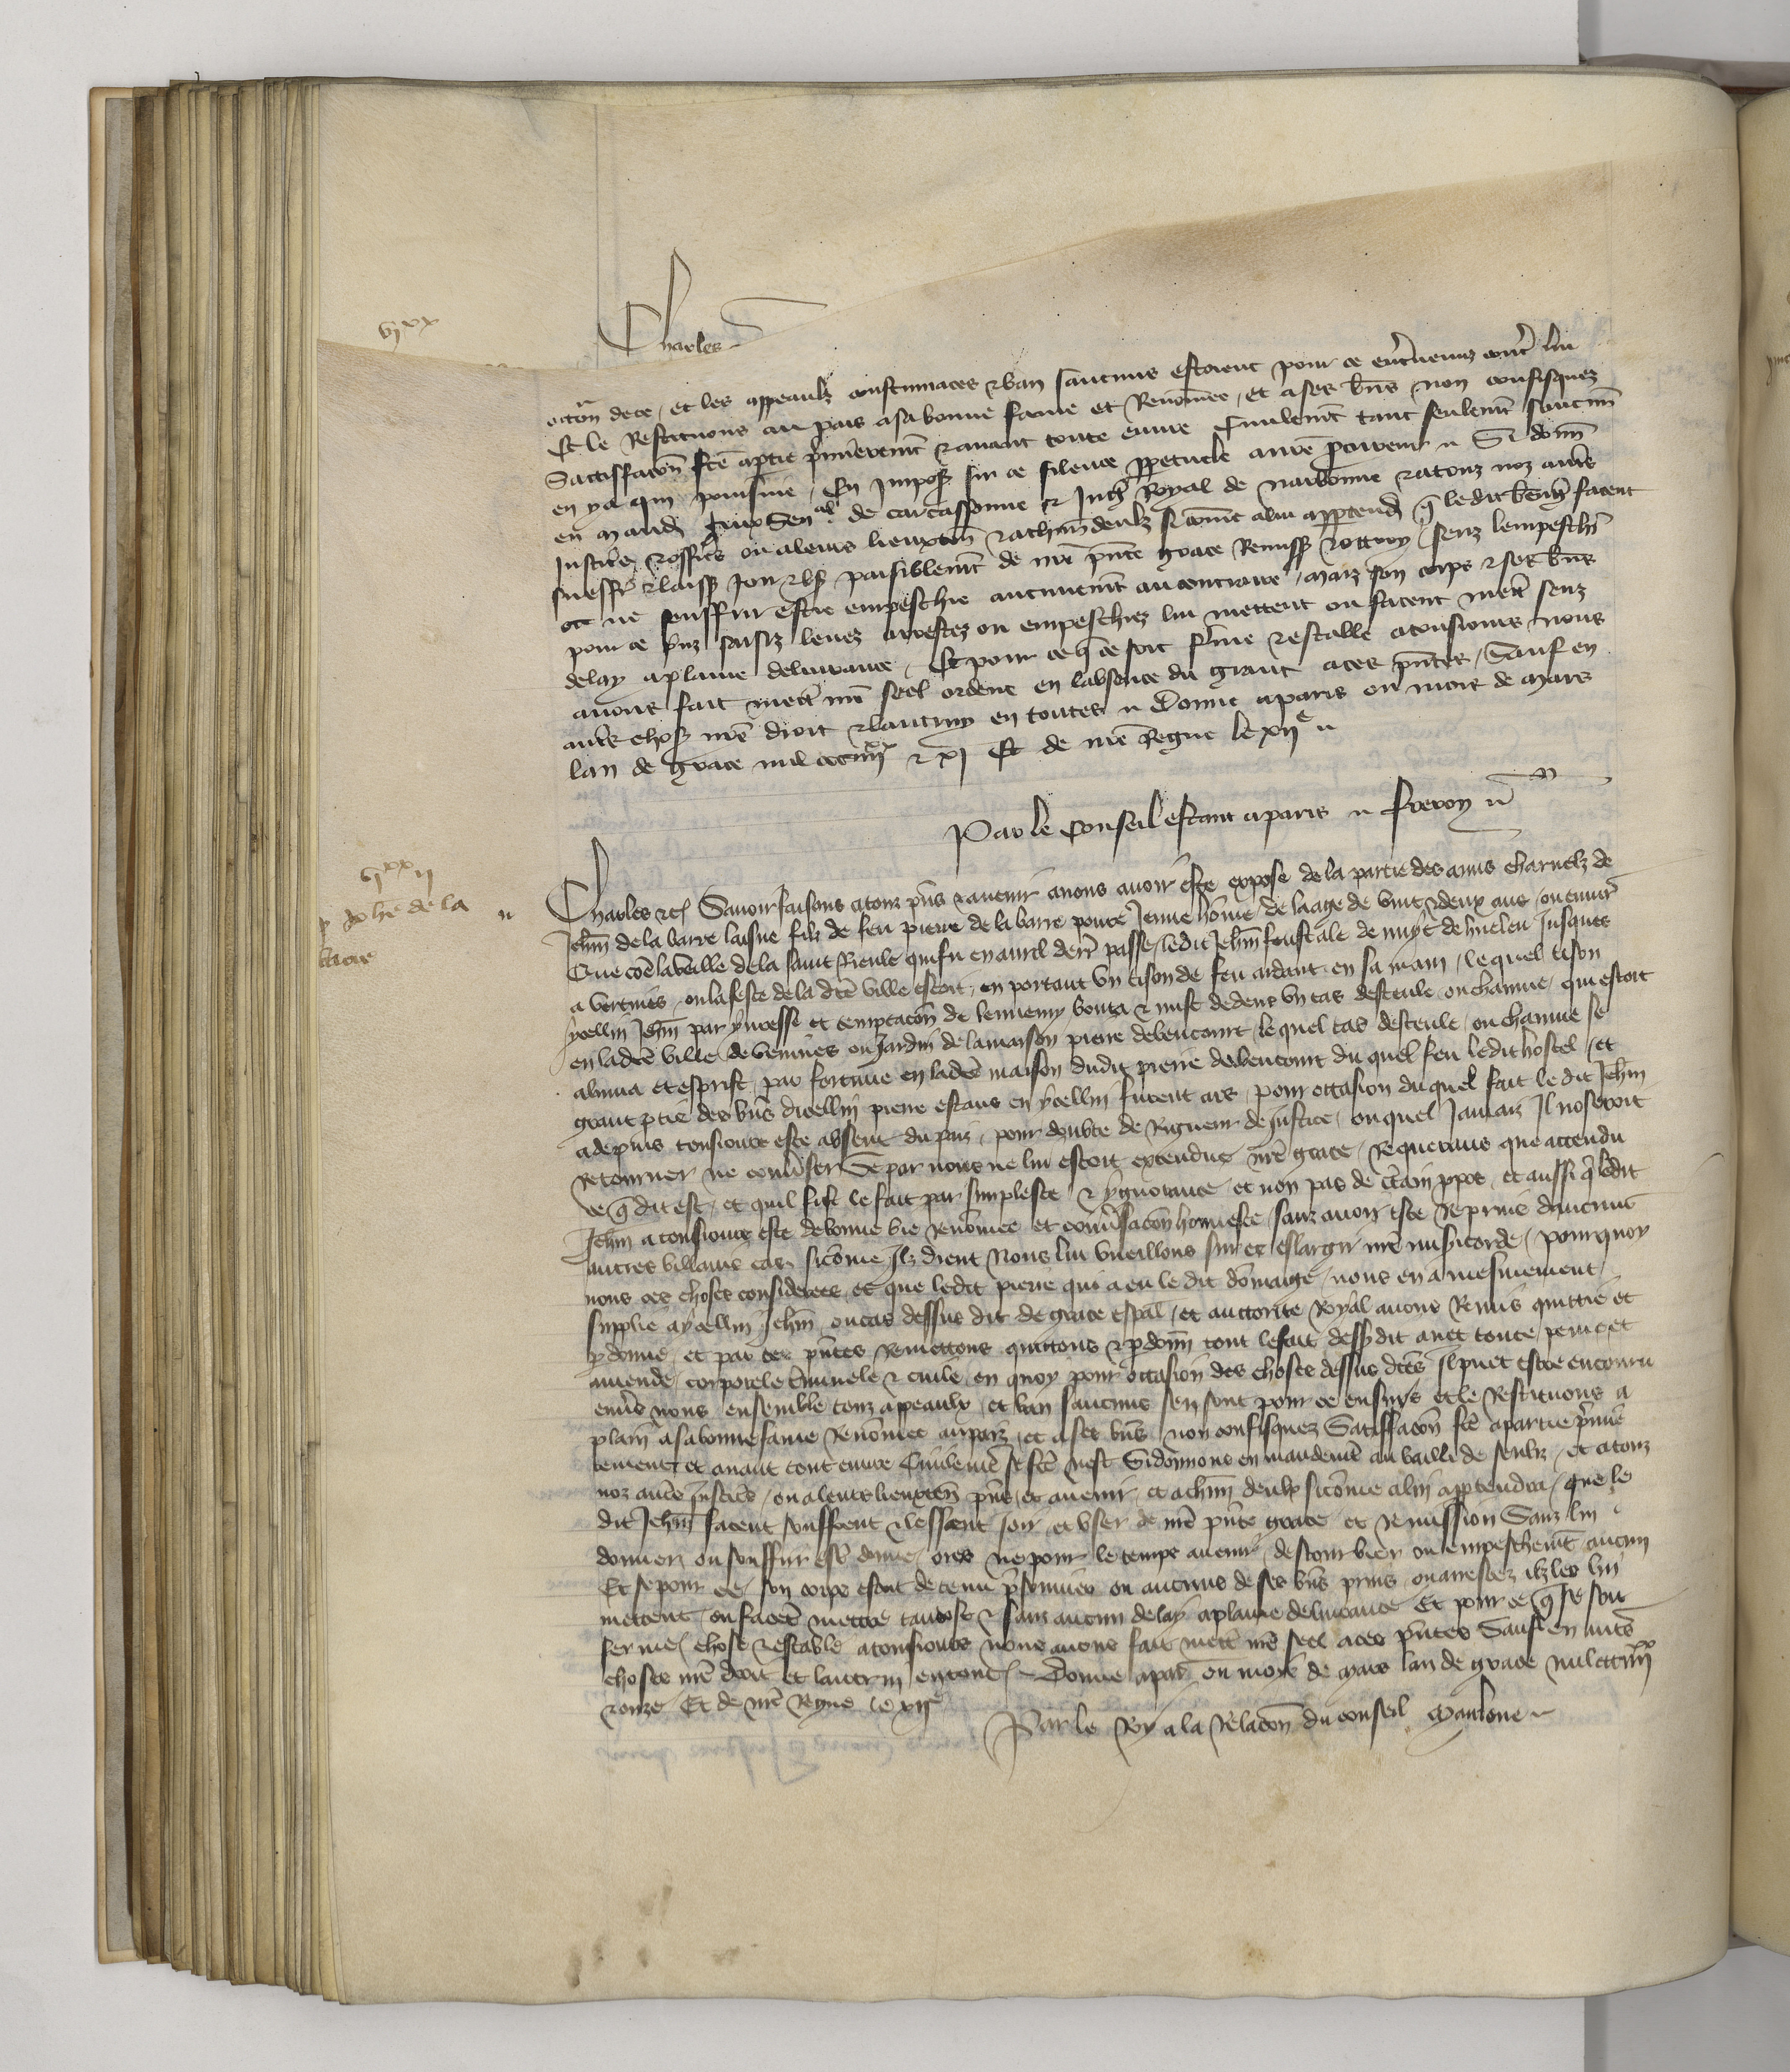 vjxx
Charles
occon̄ de ce / et les appeaulx contumaces & ban saucuns estoient pour ce ensuivenuz contr̄ lui
Et le Restituons au pais a sa bonne fame et Renōmee / et a ses biens non confisquez
Satisfacōn fcē a ptie p̄mierem̄t & avant toute euvre Civilem̄t tant seulem̄t saucun
en y a qui poursuie / En Imposz sur ce silence ppetuele a nr̄e procureur Si donn̄
en mandm̄t aux Sen̄al de carcassonne & Juge Royal de narbonne & a touz noz autr̄s
Justic̄ & officr̄s ou a leurs lieuxten̄ & a chūn deulx si com̄e a lui apptendr̄ q̄ le dit facent
sueffr̄ & laissz Joir & usr̄ paisiblem̄t de nr̄e pn̄te grace Remissz & ottroy senz lempeschr̄
ou ne souffrir estre empeschie aucunem̄t au contraire / maiz son corps & ses biens
pour ce prins saisiz levez arrestez ou empeschiez lui mettent ou facent mettr̄ senz
delay a plaine delivrance / Et pour ce q̄ ce soit ferme & estable a tousiours nous
avons fait mettr̄ nr̄e seel ordene en labsence du grant a ces pn̄tes / Sauf en
autr̄s chosz nr̄e droit & lautruy en toutes Donne a paris ou mois de mars
lan de grace mil ccciiijxx & xj Et de nr̄e Regne le xije
Par le Conseil estant a paris Freron
vjxxij
p Jehē de la
barre
Charles &c Savoir faisons a touz p̄ns & avenir a nous avoir este expose de la partie des amis charnelz de
Jehan̄ de la barre laisne filz de feu pierre de la barre povre Jeune hōme de laage de vint & deux ans ou environ
Que cōe la veille de la saint Rieule qui fu en avril derr̄ passe / le dit Jehan̄ feust ale de nuyt de jusques
a verrines / ou la feste de la dcē ville estoit / en portant un tison de feu ardant en sa main / le quel tison
ycellui Jehan̄ par yvresse et temptacōn de lennemy bouta & mist dedens un tas desteule ou chanme qui estoit
en la dcē ville de verrines ou Jardin de la maison pierre debeucourt / le quel tas desteule ou chanme se
aluma et esprist / par fortune en la dcē maison dudit pierre debeucourt du quel feu le dit hostel / et
grant ptie des biens dicellui pierre estans en ycellui furent ars / pour occasion du quel fait le dit Jehan̄
a depuis tousiours este absent du paiz / pour doubte de Rigueur de Justice / ou quel Jamaiz Il noseroit
Retourner ne converser Se par nous ne lui estoit extendue nr̄e grace / Requerans que attendu
ce q̄ dit est / et quil fist le fait par simplesce & ygnorance / et non pas de certain ppos / et aussi q̄ le dit
Jehan̄ a tousiours este de bonne vie Renōmee et conversacōn honneste / sanz avoir este Reprins daucuns
autres villains cas / si cōme Ilz dient Nous lui vueillons sur ce eslargir nr̄e misericorde / Pourquoy
nous ces choses considerees / et que le dit pierre qui a eu le dit dōmaige / nous en a mesmement
supplie a ycellui Jehan̄ ou cas dessus dit de grace espāl / et auctorite Royal avons Remis quittie et
p̄donne / et par ces p̄ntes Remettons quittons & pdonn̄ tout le fait dessusdit avec toute peine et
amende corporele crim̄inele & civile / en quoy pour occasion des choses dessus dcēs Il puet estre encouru
envers nous ensemble touz appeaulx / et ban saucuns sen sont pour ce ensuis et le Restituons a
plain a sa bonne fame Renōmee au paiz / et a ses biens non confisquez Satisfacōn fcē a partie p̄mie
rement et avant tout euvre Civilemēt se fcē nest Si donnons en mandemēt au bailli de senliz / et a touz
noz autr̄s Justicrs / ou a leurs lieuxten̄ p̄ns / et avenir / et a chūn deulx si cōme a lui apptendra / que le
dit Jehan̄ facent sueffrent & lessent joir et user de nr̄e p̄nte grace et Remission Sanz lui
donner ou souffrir estr̄ donne / ores ne pour le temps avenir / destourbier ou empeschem̄t aucun
Et se pour ce son corps estoit detenu p̄sonnier ou aucuns de ses biens prins / ou arrestez ilz les lui
mettent / ou facent mettre tantost & sanz aucun delay a plaine delivrance Et pour ce q̄ ce soit
ferme chose & estable a tousiours nous avons fait mettr̄ nr̄e seel a ces p̄ntes Sauf en autr̄s
choses nr̄e droit et lautrui en toutes Donne a paris ou moys de mars lan de grace mil ccciiijxx
& onze Et de nr̄e Regne le xije
Par le Roy a la Relacōn du conseil Maulone